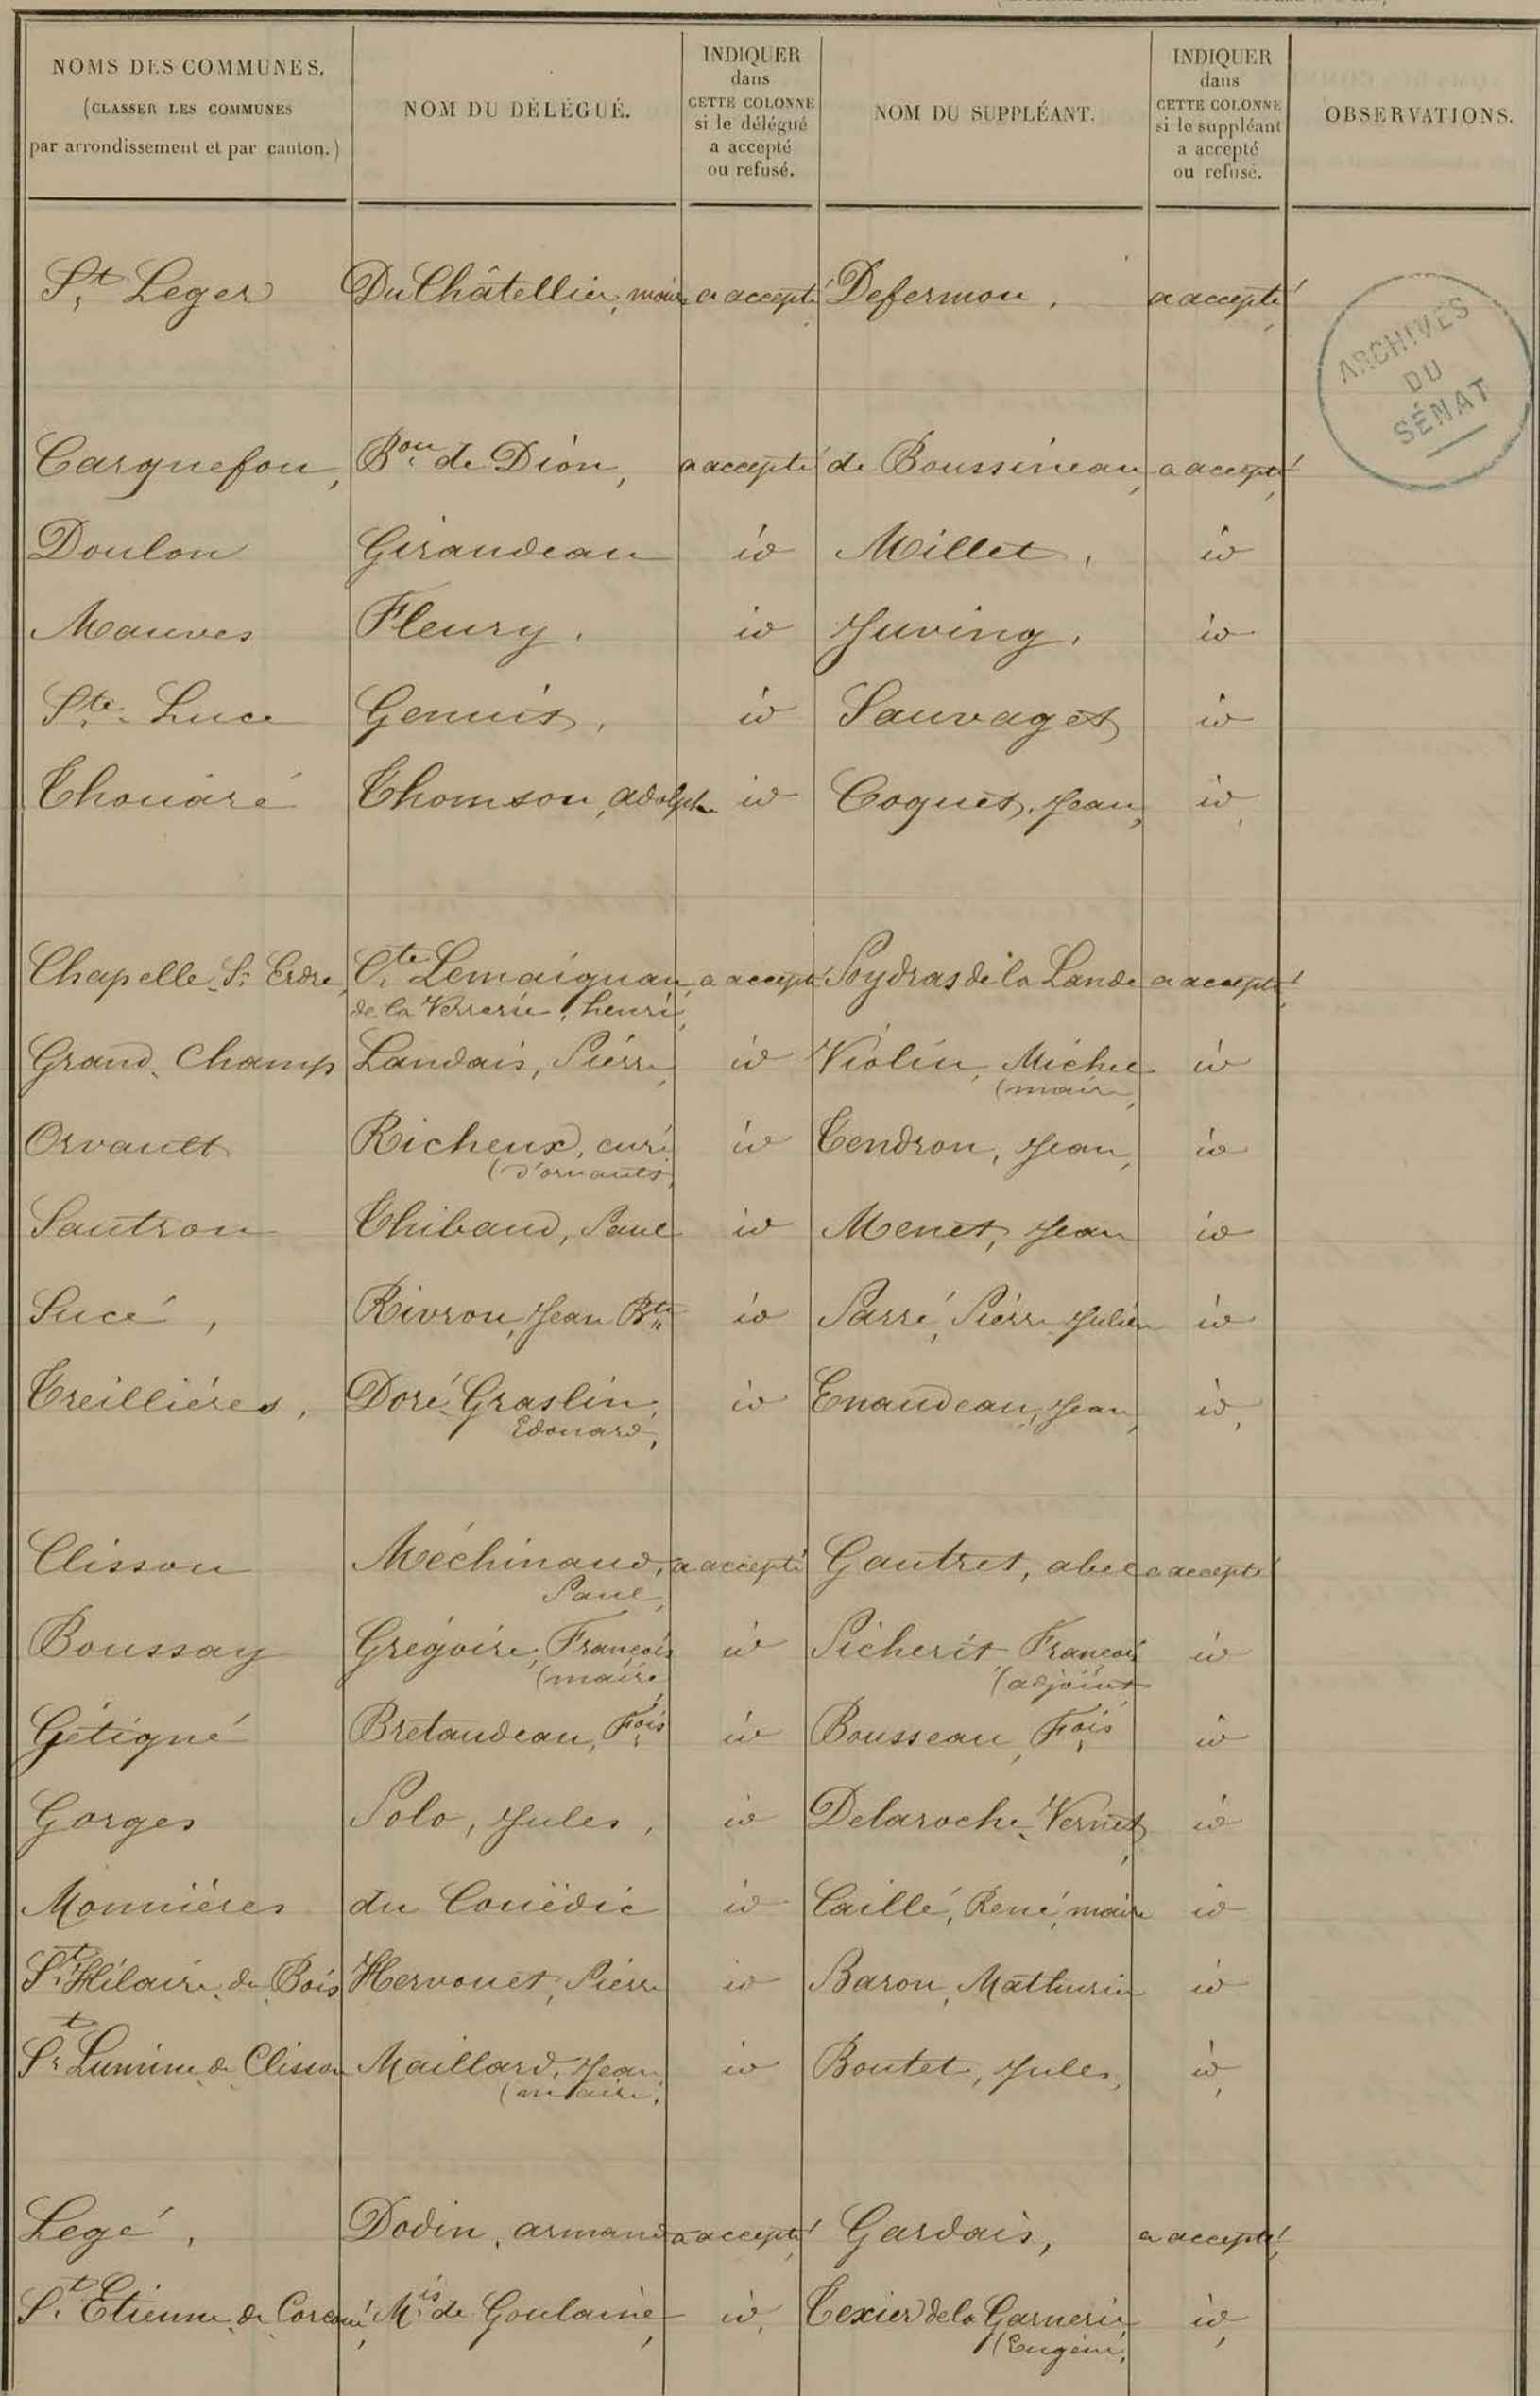 NOMS DES COMMUNES.
(CLASSER LES COMMUNES
par arrondissement et par canton.)
NOM DU DÉLÉGUÉ.
INDIQUER
dans
CETTE COLONNE
si le délégué
a accepté
ou refusé.
NOM DU SUPPLÉANT.
INDIQUER
dans
CETTE COLONNE
si le suppléant
a accepté
ou refusé.
OBSERVATIONS.
St Leger Du Châtellier, maire a accepté Defermon, a accepté
ARCHIVES
DU
SÉNAT
Carquefou, Bon de Dion, a accepté de Boussineau, a accepté
Doulon Giraudeau id Millet, id
Mauves Fleury, id Juving, id
Ste Luce Genuit, id Sauvaget id
Thouaré Thomson, Adolphe id Coquet, Jean, id,
Chapelle S: Erdre, Cte Lemaignan a accepté Poydras de la Lande a accepté
de la Verrerie, henri,
Grand-Champ Landais, Pierre, id Violin, Michel id
(maire,
Orvault Richeux, curé id Tendron, Jean, id
(d'orvault,
Sautron Thibaud, Paul id Menet, Jean id
Sucé, Rivron, Jean Bte id Parré, Pierre Julien id
Treillières, Doré Graslin, id Enaudeau, Jean, id,
Edouard,
Clisson Méchinaud, a accepté Gautret, abel a accepté
Paul,
Boussay Grégoire, François id Picherit François id
(maire, (adjoint
Gétigné Bretaudeau, Fois id Bousseau, Fois id
Gorges Polo, Jules, id Delaroche-Vernet, id
Monnières du Couëdic id Caillé, René, maire id
St Hilaire-du-Bois Hervouet, Pierre id Baron, Mathurin id
St Lumine-de-Clisson Maillard, Jean id Boutet, Jules, id,
(maire,
Legé, Dodin, armand a accepté Gardais, a accepté,
St Etienne-de-Corcoué, Mis de Goulaine, id, Texier de la Garnerie id,
(Eugène,